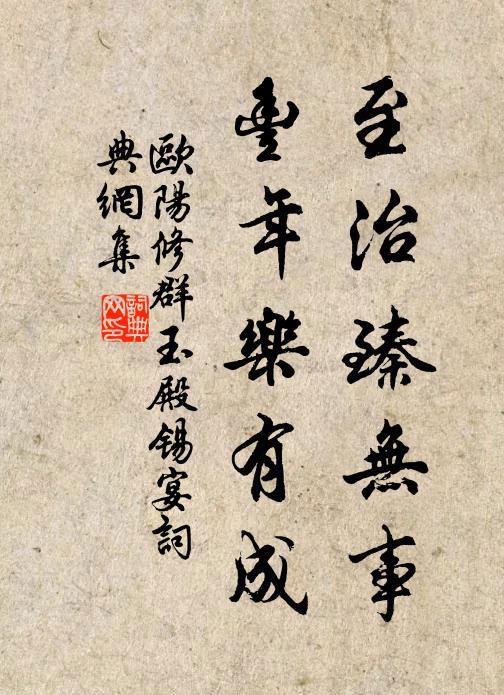 至治臻無事
豐年樂有成
歐陽修群玉殿錫宴詞
典網集
詞典网印